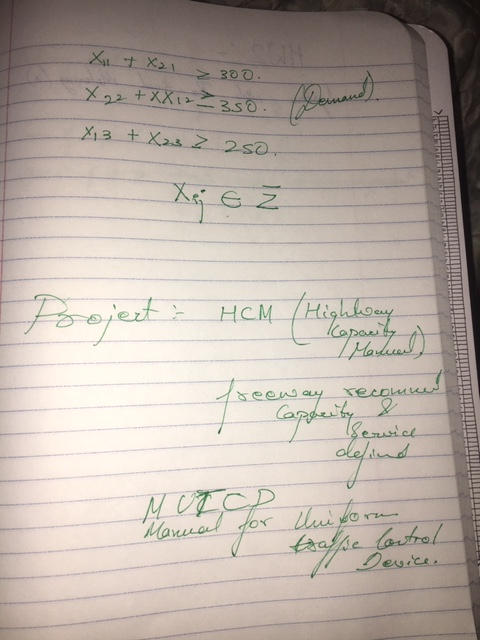 X11 + X21 ≥ 300.
X22 + XX12 ≥ 350. (Demand).
X13 + X23 ≥ 250.
Xij ∈ Z̄
Project :- HCM (Highway
Capacity
Manual)
freeway
Capacity &
Service
defind
MUTCD
Manual for Uniform
traffic Control
Device.